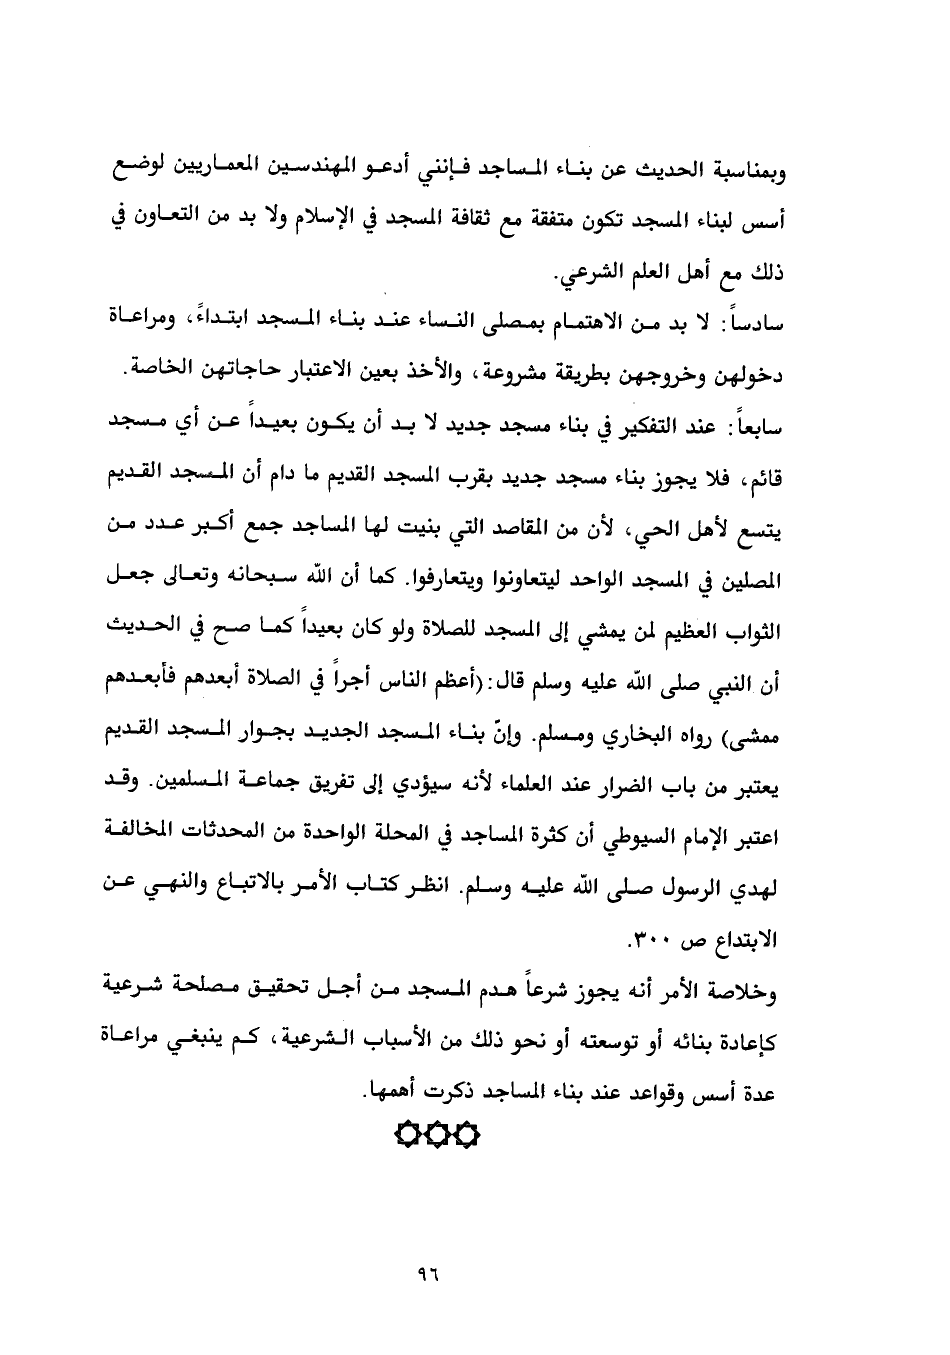 وبمناسبة الحديث عن بناء المساجد فإنني أدعو المهندسين المعماريين لوضع
أسس لبناء المسجد تكون متفقة مع ثقافة المسجد في الإسلام ولا بد من التعاون في
ذلك مع أهل العلم الشرعي.
سادساً: لا بد من الاهتمام بمصلى النساء عند بناء المسجد ابتداءً، ومراعاة
دخولهن وخروجهن بطريقة مشروعة، والأخذ بعين الاعتبار حاجاتهن الخاصة.
سابعاً: عند التفكير في بناء مسجد جديد لا بد أن يكون بعيداً عن أي مسجد
قائم، فلا يجوز بناء مسجد جديد بقرب المسجد القديم ما دام أن المسجد القديم
يتسع لأهل الحي، لأن من المقاصد التي بنيت لها المساجد جمع أكبر عدد من
المصلين في المسجد الواحد ليتعاونوا ويتعارفوا. كما أن الله سبحانه وتعالى جعل
الثواب العظيم لمن يمشي إلى المسجد للصلاة ولو كان بعيداً كما صح في الحديث
أن النبي صلى الله عليه وسلم قال:(أعظم الناس أجراً في الصلاة أبعدهم فأبعدهم
ممشى) رواه البخاري ومسلم. وإنّ بناء المسجد الجديد بجوار المسجد القديم
يعتبر من باب الضرار عند العلماء لأنه سيؤدي إلى تفريق جماعة المسلمين. وقد
اعتبر الإمام السيوطي أن كثرة المساجد في المحلة الواحدة من المحدثات المخالفة
لهدي الرسول صلى الله عليه وسلم. انظر كتاب الأمر بالاتباع والنهي عن
الابتداع ص ٣٠٠.
وخلاصة الأمر أنه يجوز شرعاً هدم المسجد من أجل تحقيق مصلحة شرعية
كإعادة بنائه أو توسعته أو نحو ذلك من الأسباب الشرعية، كم ينبغي مراعاة
عدة أسس وقواعد عند بناء المساجد ذكرت أهمها.
٩٦